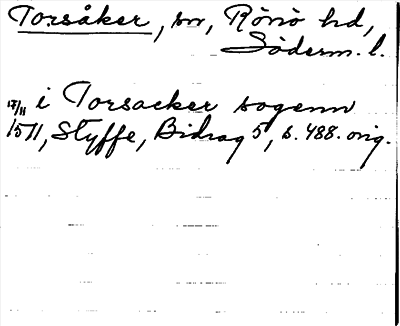 Torsåker, sn, Rönö hd,
Söderm. l.
17/11 i Torsacker sogenn
1511, Styffe, Bidrag 5, s. 488. orig.